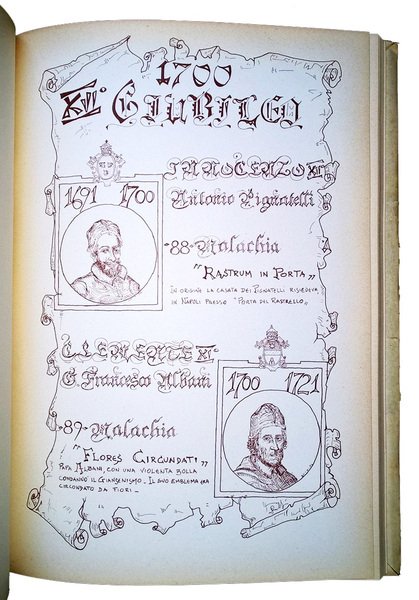 1700
XVI° GIUBILEO
INNOCENZO XII
Antonio Pignatelli
1691 1700
-88- Malachia
"RASTRUM IN PORTA"
IN ORIGINE LA CASATA DEI PIGNATELLI RISIEDEVA
IN NAPOLI PRESSO "PORTA DEL RASTRELLO"
CLEMENTE XI°
G. Francesco Albani
1700 1721
-89- Malachia
"FLORES CIRCUNDATI"
PAPA ALBANI, CON UNA VIOLENTA BOLLA
CONDANNÒ IL GIANSENISMO - IL SUO EMBLEMA ERA
CIRCONDATO DA FIORI -